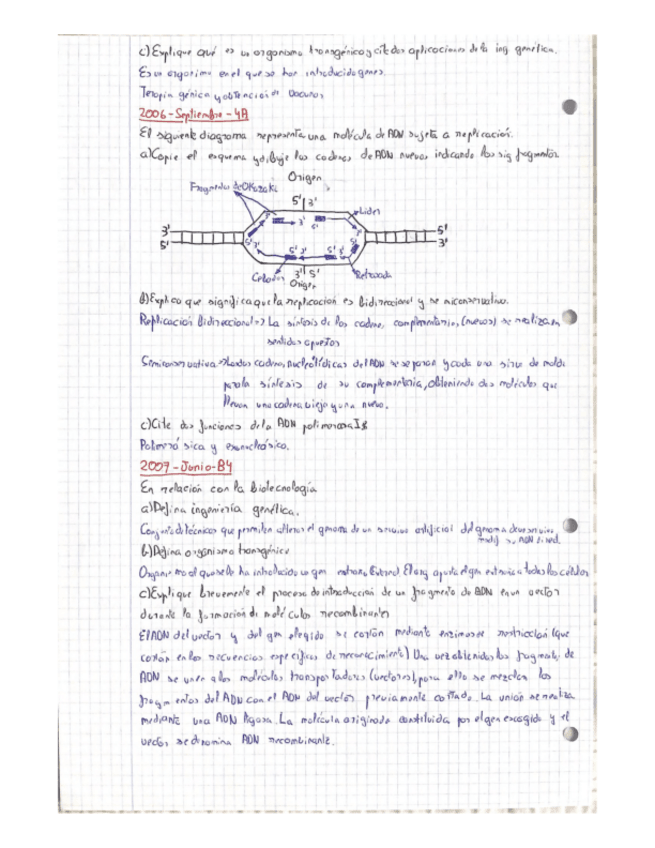 c) Explique qué es un organismo transgénico y cite dos aplicaciones de la ing. genética.
Es un organismo en el que se han introducido genes.
Terapia génica y obtención de vacunas
2006-Septiembre-4A
El siguiente diagrama representa una molécula de ADN sujeta a replicación.
a) Copie el esquema y dibuje las cadenas de ADN nuevas indicando los sig fragmentos
Origen
Fragmentos de Okazaki
5' 3'
Líder
3' 5'
3' 5'
5' 3'
3' 5' 5' 3'
Cebador 3' 5' Retrasada
Origen
b) Explica que significa que la replicación es bidireccional y semiconservativa.
Replicación Bidireccional => La síntesis de las cadenas complementarias (nuevas) se realiza en
sentidos opuestos
Semiconservativa => Las dos cadenas nucleotídicas del ADN se separan y cada una sirve de molde
para la síntesis de su complementaria, obteniendo dos moléculas que
llevan una cadena vieja y una nueva.
c) Cite dos funciones de la ADN polimerasa I
Polimerásica y exonucleásica.
2007-Junio-B4
En relación con la biotecnología
a) Defina ingeniería genética.
Conjunto de técnicas que permiten alterar el genoma de un ser vivo
b) Defina organismo transgénico
Organismo al que se le ha introducido un gen extraño El org aporta el gen extraño a todas las células
c) Explique brevemente el proceso de introducción de un fragmento de ADN en un vector
durante la formación de moléculas recombinantes
El ADN del vector y del gen elegido se cortan mediante enzimas de restricción (que
cortan en las secuencias específicas de reconocimiento) Una vez obtenidos los fragmentos de
ADN se unen a las moléculas transportadoras (vectores), para ello se mezclan los
fragmentos del ADN con el ADN del vector previamente cortado. La unión se realiza
mediante una ADN ligasa. La molécula originada constituida por el gen escogido y el
vector se denomina ADN recombinante.